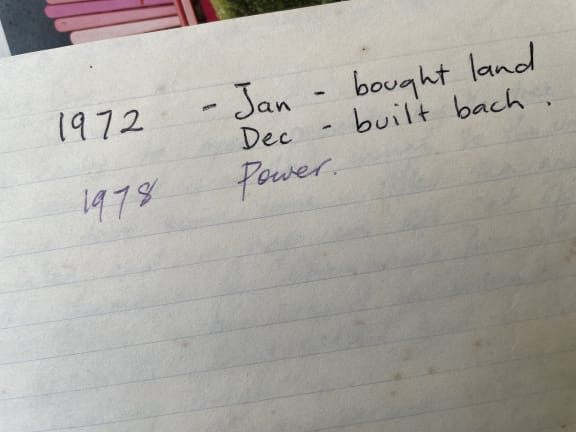 1972 - Jan - bought land
Dec - built bach.
1978 Power.